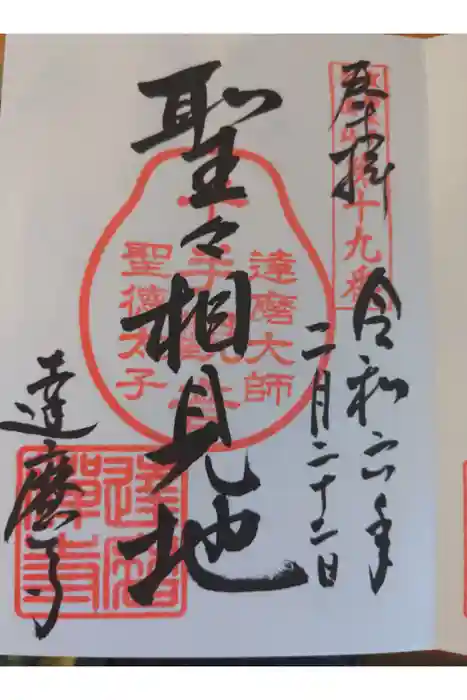 奉拝
令和六年
二月二十二日
聖々相見地
達磨大師
千手観音
聖徳太子
達磨寺
達磨禅寺